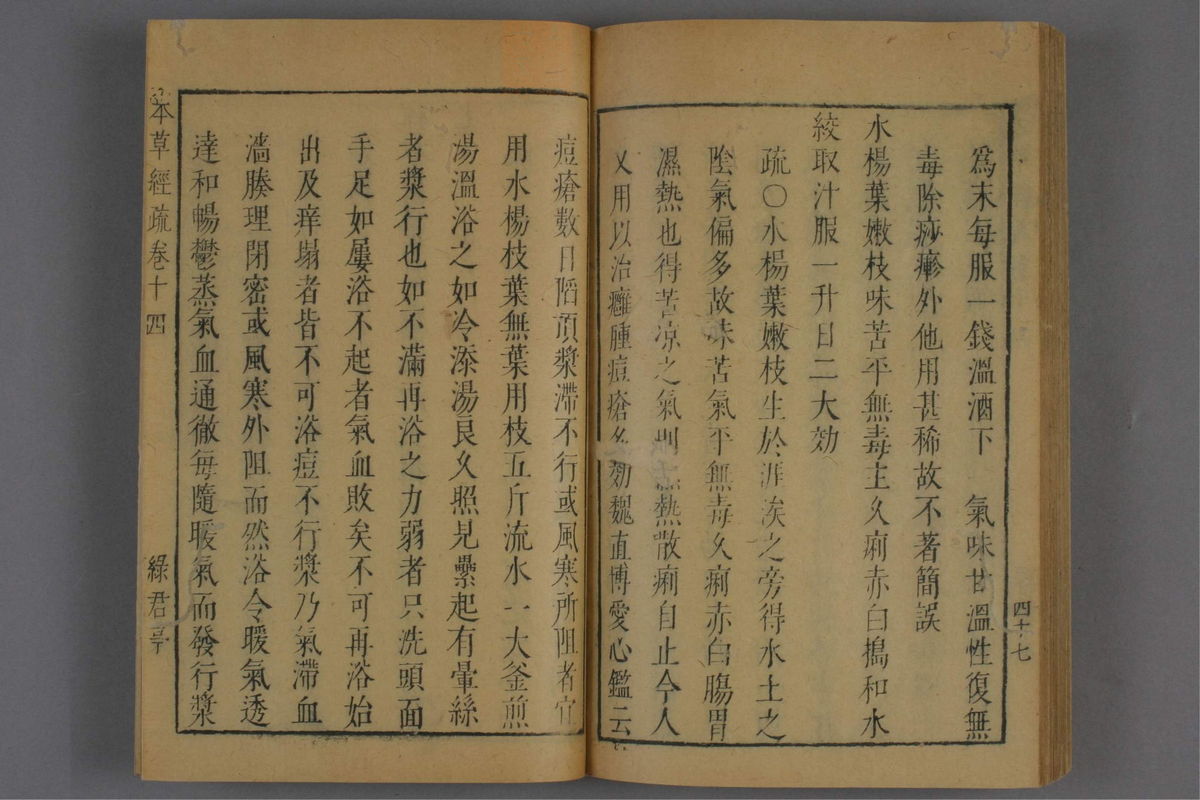 四十七
為末每服一錢溫酒下　氣味甘溫性復無
毒除痧瘮外他用甚稀故不著簡誤
水楊葉嫩枝味苦平無毒主久痢赤白搗和水
絞取汁服一升日二大効
疏○水楊葉嫩枝生於涯涘之旁得水土之
陰氣偏多故味苦氣平無毒久痢赤白腸胃
濕熱也得苦凉之氣則熱散痢自止今人
又用以治癰腫痘瘡多効魏直博愛心鑑云
痘瘡數日陷頂漿滯不行或風寒所阻者宜
用水楊枝葉無葉用枝五斤流水一大釜煎
湯溫浴之如冷添湯良久照見纍起有暈絲
者漿行也如不滿再浴之力弱者只洗頭面
手足如屢浴不起者氣血敗矣不可再浴始
出及痒塌者皆不可浴痘不行漿乃氣滯血
濇腠理閉密或風寒外阻而然浴令暖氣透
達和暢鬱蒸氣血通徹每隨暖氣而發行漿
本草經疏卷十四　綠君亭